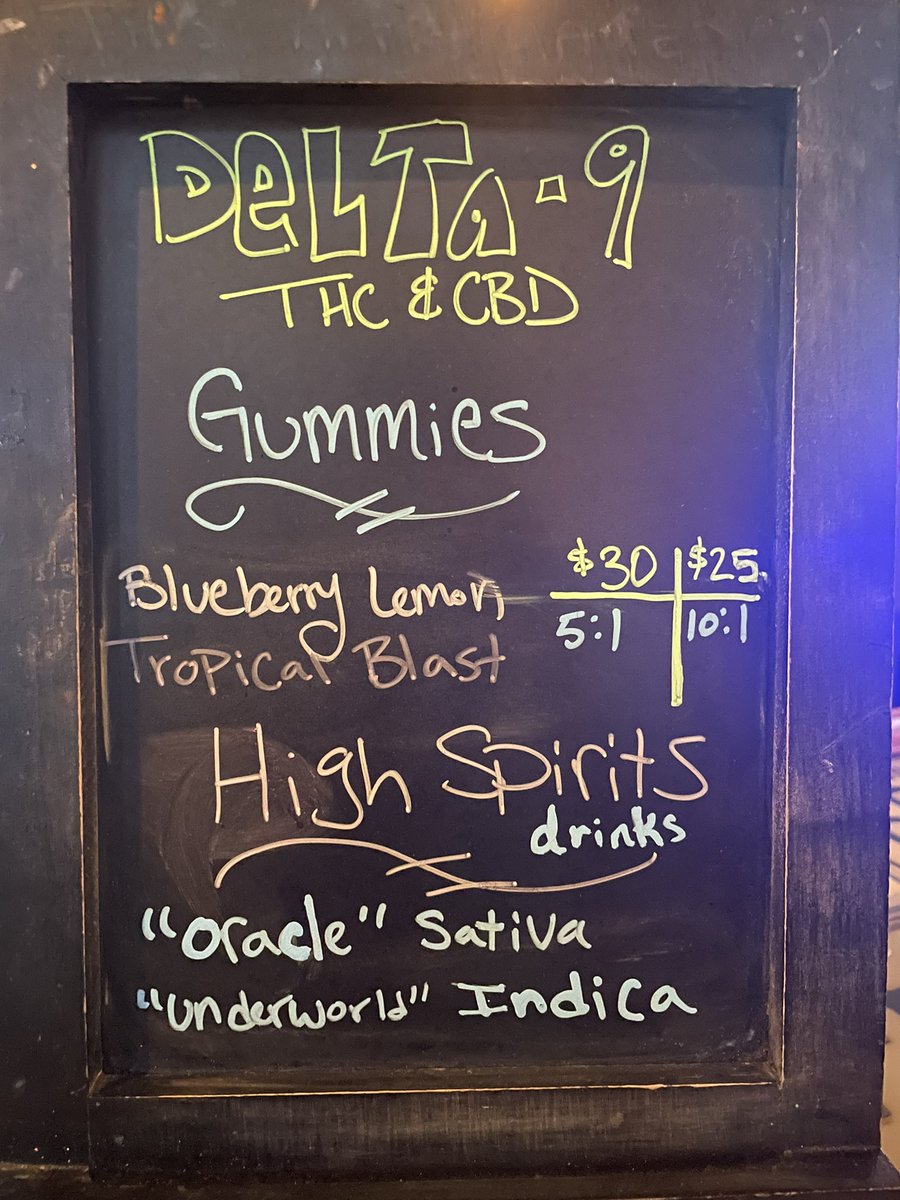 DeLTa-9
THC & CBD
Gummies
Blueberry Lemon, $30 $25
Tropical Blast 5:1 10:1
High Spirits
drinks
"oracle" Sativa
"underworld" Indica